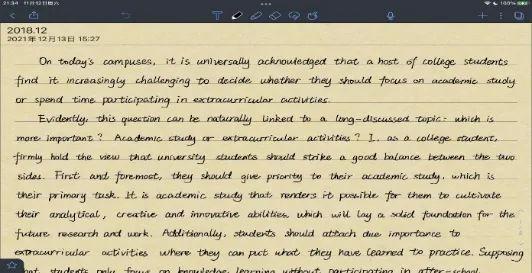 21:34 11月12日周五
2018.12
2021年12月13日 15:27
On today's campuses, it is universally acknowledged that a host of college students
find it increasingly challenging to decide whether they should focus on academic study
or spend time participating in extracurricular activities.
Evidently, this question can be naturally linked to a long-discussed topic: which is
more important? Academic study or extracurricular activities? I, as a college student,
firmly hold the view that university students should strike a good balance between the two
sides. First and foremost, they should give priority to their academic study, which is
their primary task. It is academic study that renders it possible for them to cultivate
their analytical, creative and innovative abilities, which will lay a solid foundation for the
future research and work. Additionally, students should attach due importance to
extracurricular activities where they can put what they have learned to practice. Supposing
that students only focus on knowledge learning without participating in after-school